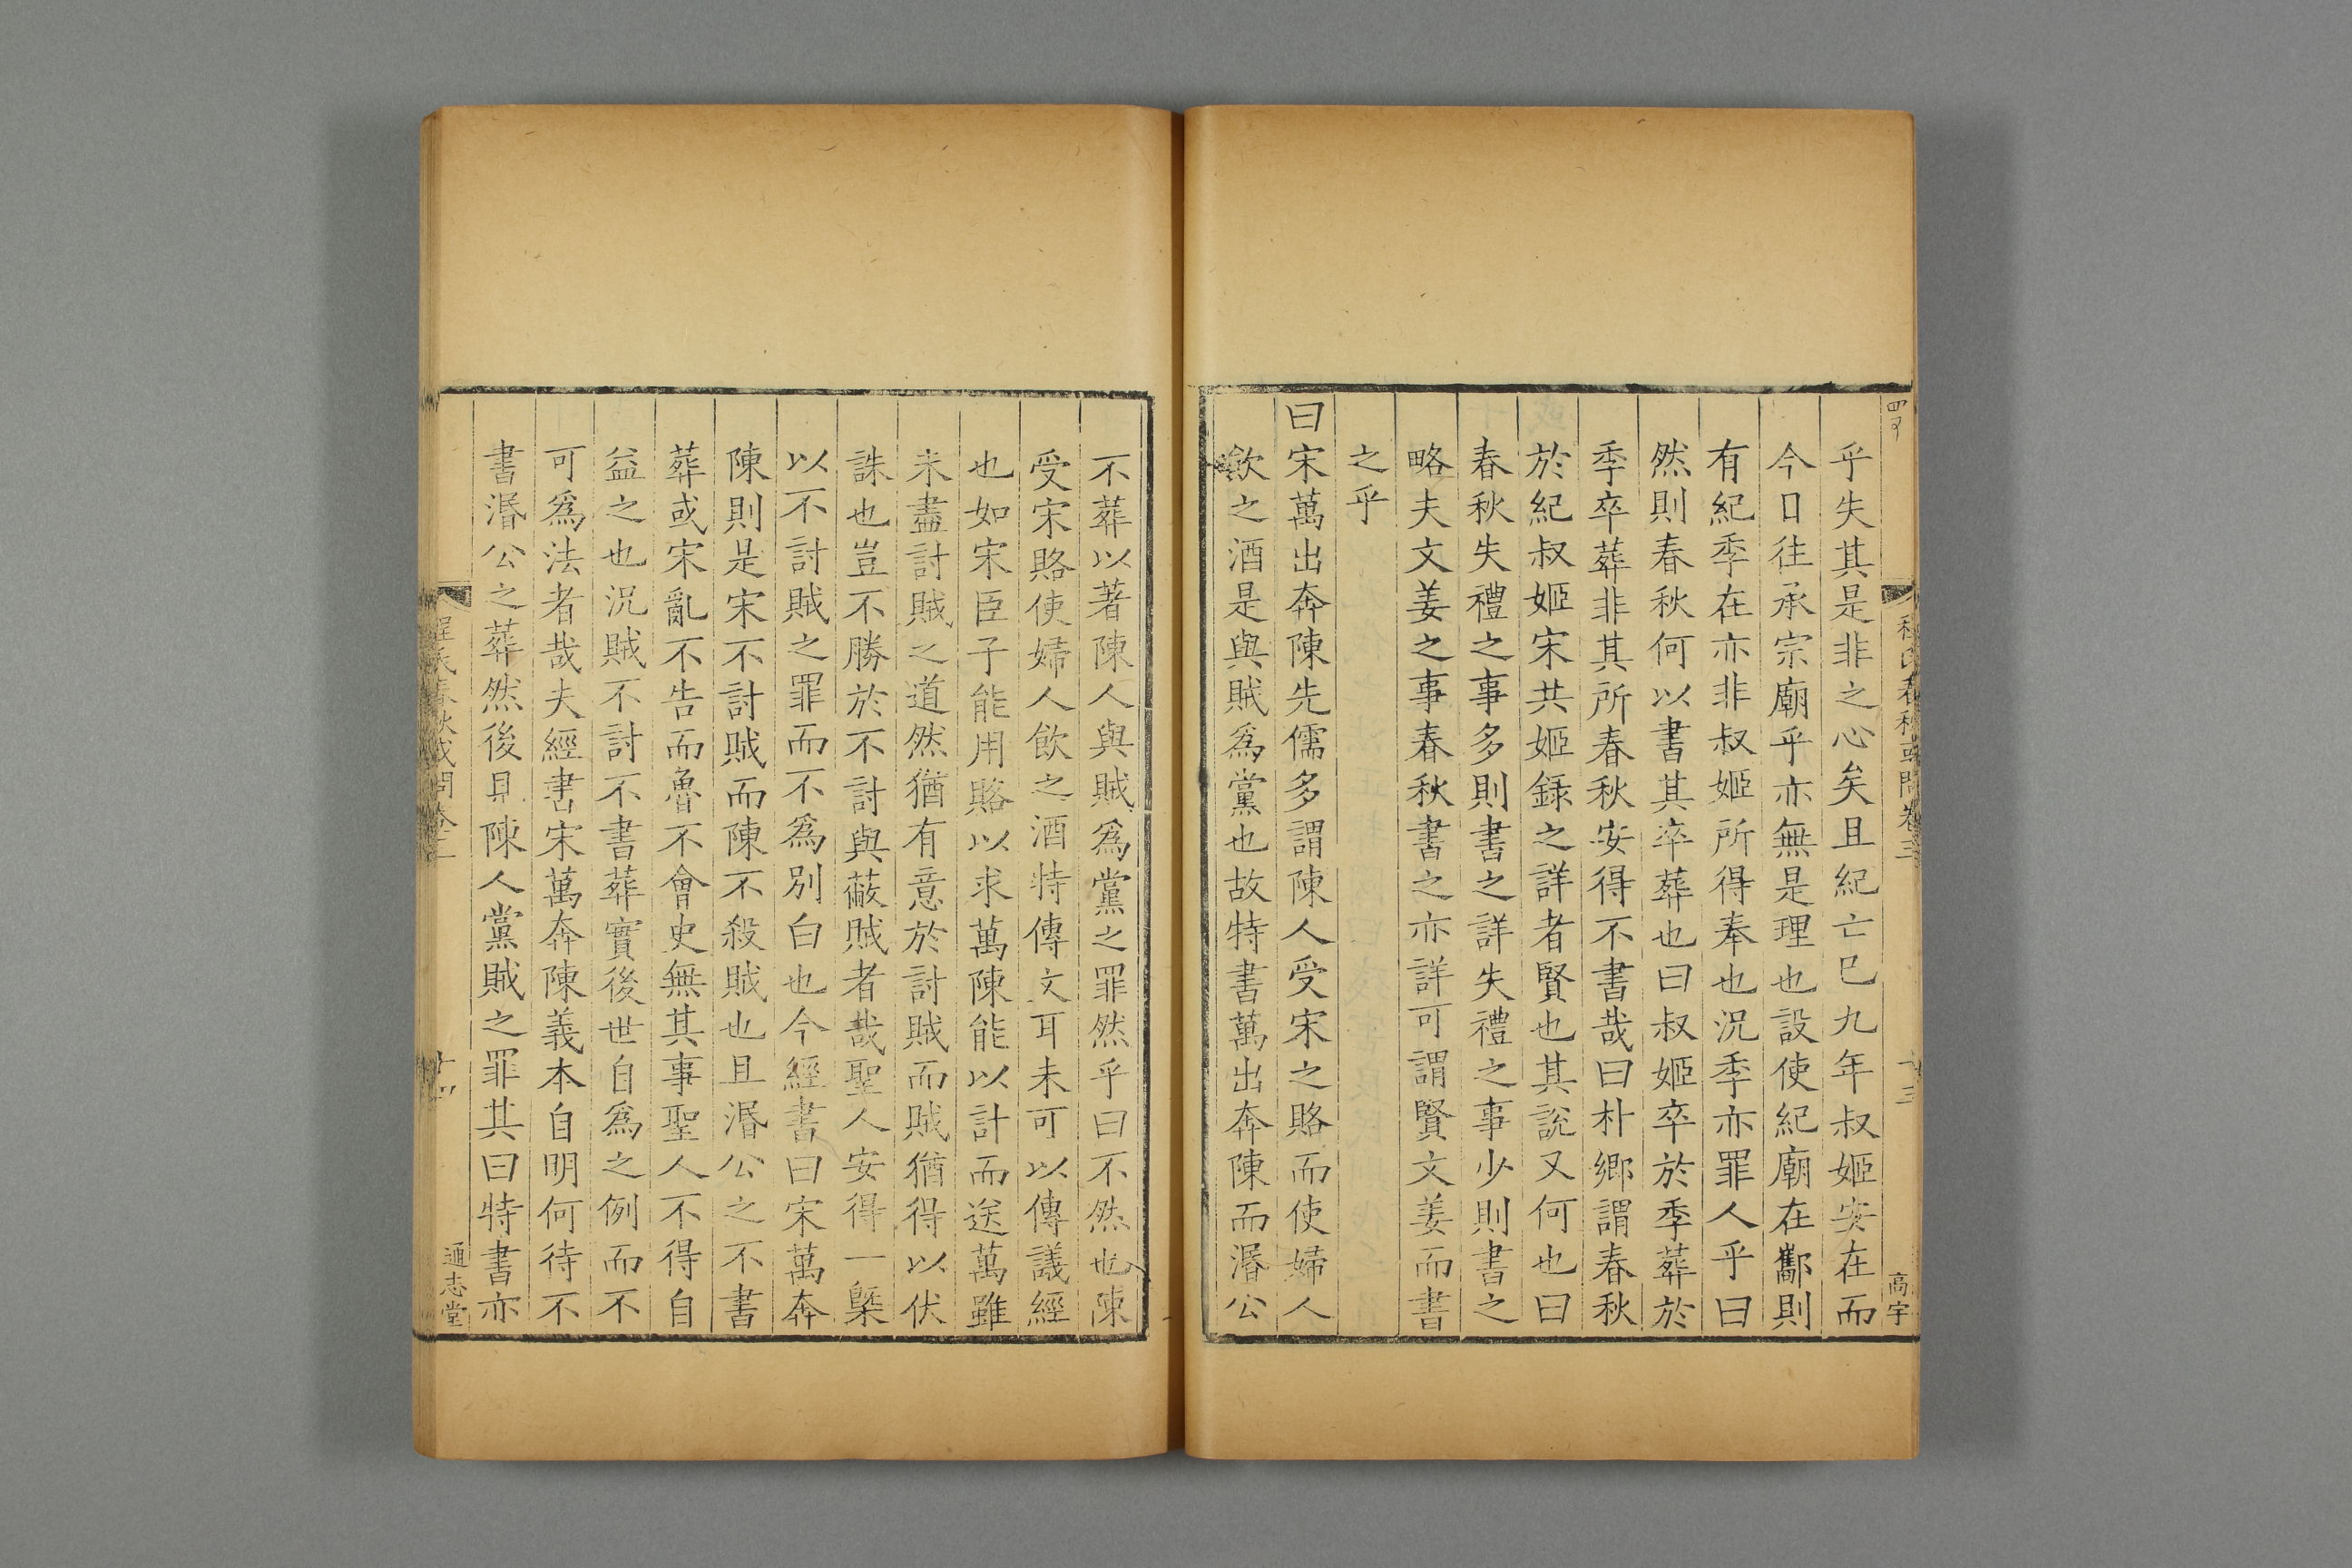 程氏春秋或問卷三
十三
高宇
乎失其是非之心矣且紀亡巳九年叔姬安在而
今日往承宗廟乎亦無是理也設使紀廟在酅則
有紀季在亦非叔姬所得奉也況季亦罪人乎曰
然則春秋何以書其卒葬也曰叔姬卒於季葬於
季卒葬非其所春秋安得不書哉曰朴鄉謂春秋
於紀叔姬宋共姬録之詳者賢也其說又何也曰
春秋失禮之事多則書之詳失禮之事少則書之
略夫文姜之事春秋書之亦詳可謂賢文姜而書
之乎
曰宋萬出奔陳先儒多謂陳人受宋之賂而使婦人
飲之酒是與賊爲黨也故特書萬出奔陳而湣公
不葬以著陳人與賊爲黨之罪然乎曰不然也陳
受宋賂使婦人飲之酒特傳文耳未可以傳議經
也如宋臣子能用賂以求萬陳能以計而送萬雖
未盡討賊之道然猶有意於討賊而賊猶得以伏
誅也豈不勝於不討與蔽賊者哉聖人安得一槩
以不討賊之罪而不爲別白也今經書曰宋萬奔
陳則是宋不討賊而陳不殺賊也且湣公之不書
葬或宋亂不告而魯不會史無其事聖人不得自
益之也況賊不討不書葬實後世自爲之例而不
可爲法者哉夫經書宋萬奔陳義本自明何待不
書湣公之葬然後見陳人黨賊之罪其曰特書亦
程氏春秋或問卷三
十四
通志堂